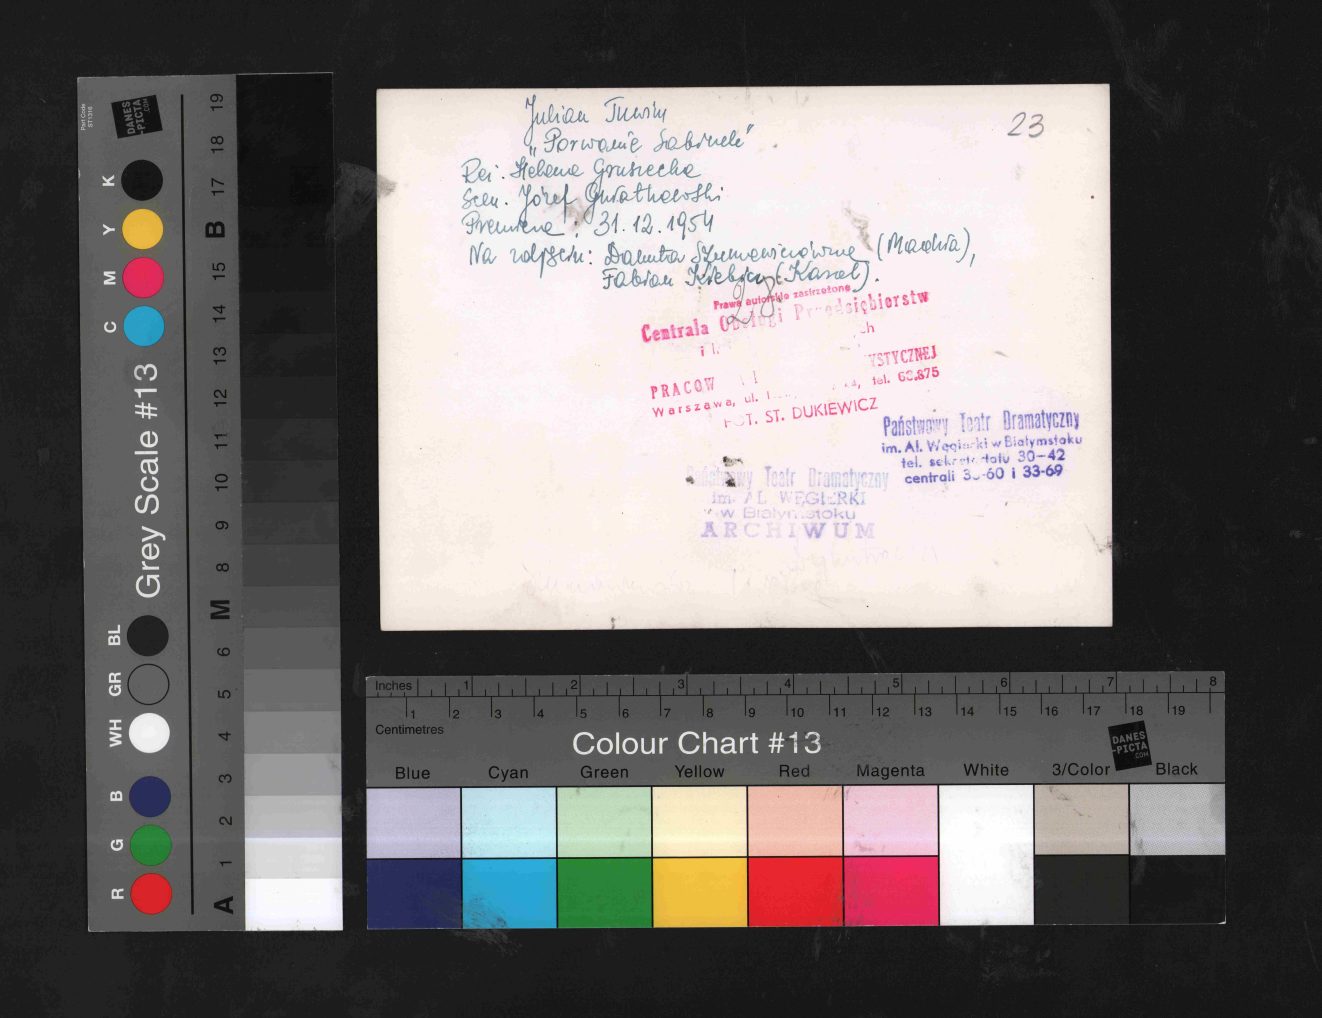 Julian Tuwim
"Porwanie Sabinek"
23
Reż. Helena Grusiecka
Scen. Józef Gwiatkowski
Premiera: 31.12.1954
Na zdjęciu: Danuta Szumowiczówna (Mańka),
Fabian Kiebicz (Karol).
Prawa autorskie zastrzeżone
Centrala Obsługi Przedsiębiorstw
i
ch
YSTYCZNEJ
PRACOW
Warszawa, ul. tel. 66.875
FOT. ST. DUKIEWICZ
Państwowy Teatr Dramatyczny
im. Al. Węgierki w Białymstoku
tel. sekretariatu 30-42
centrali 33-69
Państwowy Teatr Dramatyczny
im. AL. WĘGIERKI
w Białymstoku
ARCHIWUM
Part Code
ST1316
DANES
-PICTA
.COM
Grey Scale #13
K Y M C
BL GR WH B G R
19 18 17 B 15 14 13 12 11 10 9 8 M 6 5 4 3 2 1 A
Inches 1 2 3 4 5 6 7 8
1 2 3 4 5 6 7 8 9 10 11 12 13 14 15 16 17 18 19
Centimetres
Colour Chart #13
DANES
-PICTA
.COM
Blue Cyan Green Yellow Red Magenta White 3/Color Black